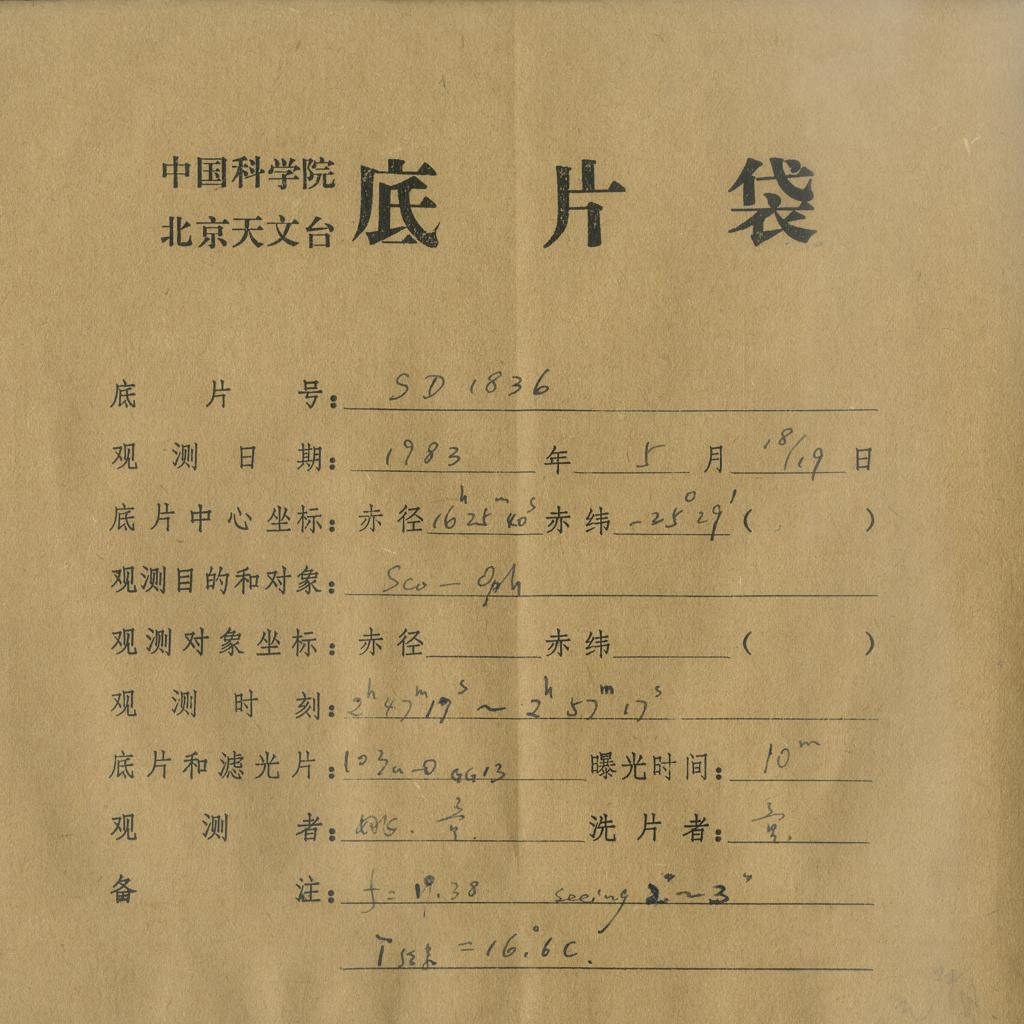 中国科学院
北京天文台 底片袋
底片号: SD 1836
观测日期: 1983 年 5 月 18/19 日
底片中心坐标: 赤径 16h 25m 40s 赤纬 -25° 29' ( )
观测目的和对象: Sco - Oph
观测对象坐标: 赤径 赤纬 ( )
观测时刻: 2h 47m 17s ~ 2h 57m 17s
底片和滤光片: 103a-O GG13 曝光时间: 10m
观测者: 洗片者:
备注: f = 19.38 seeing 2" ~ 3"
T = 16.°6 C.